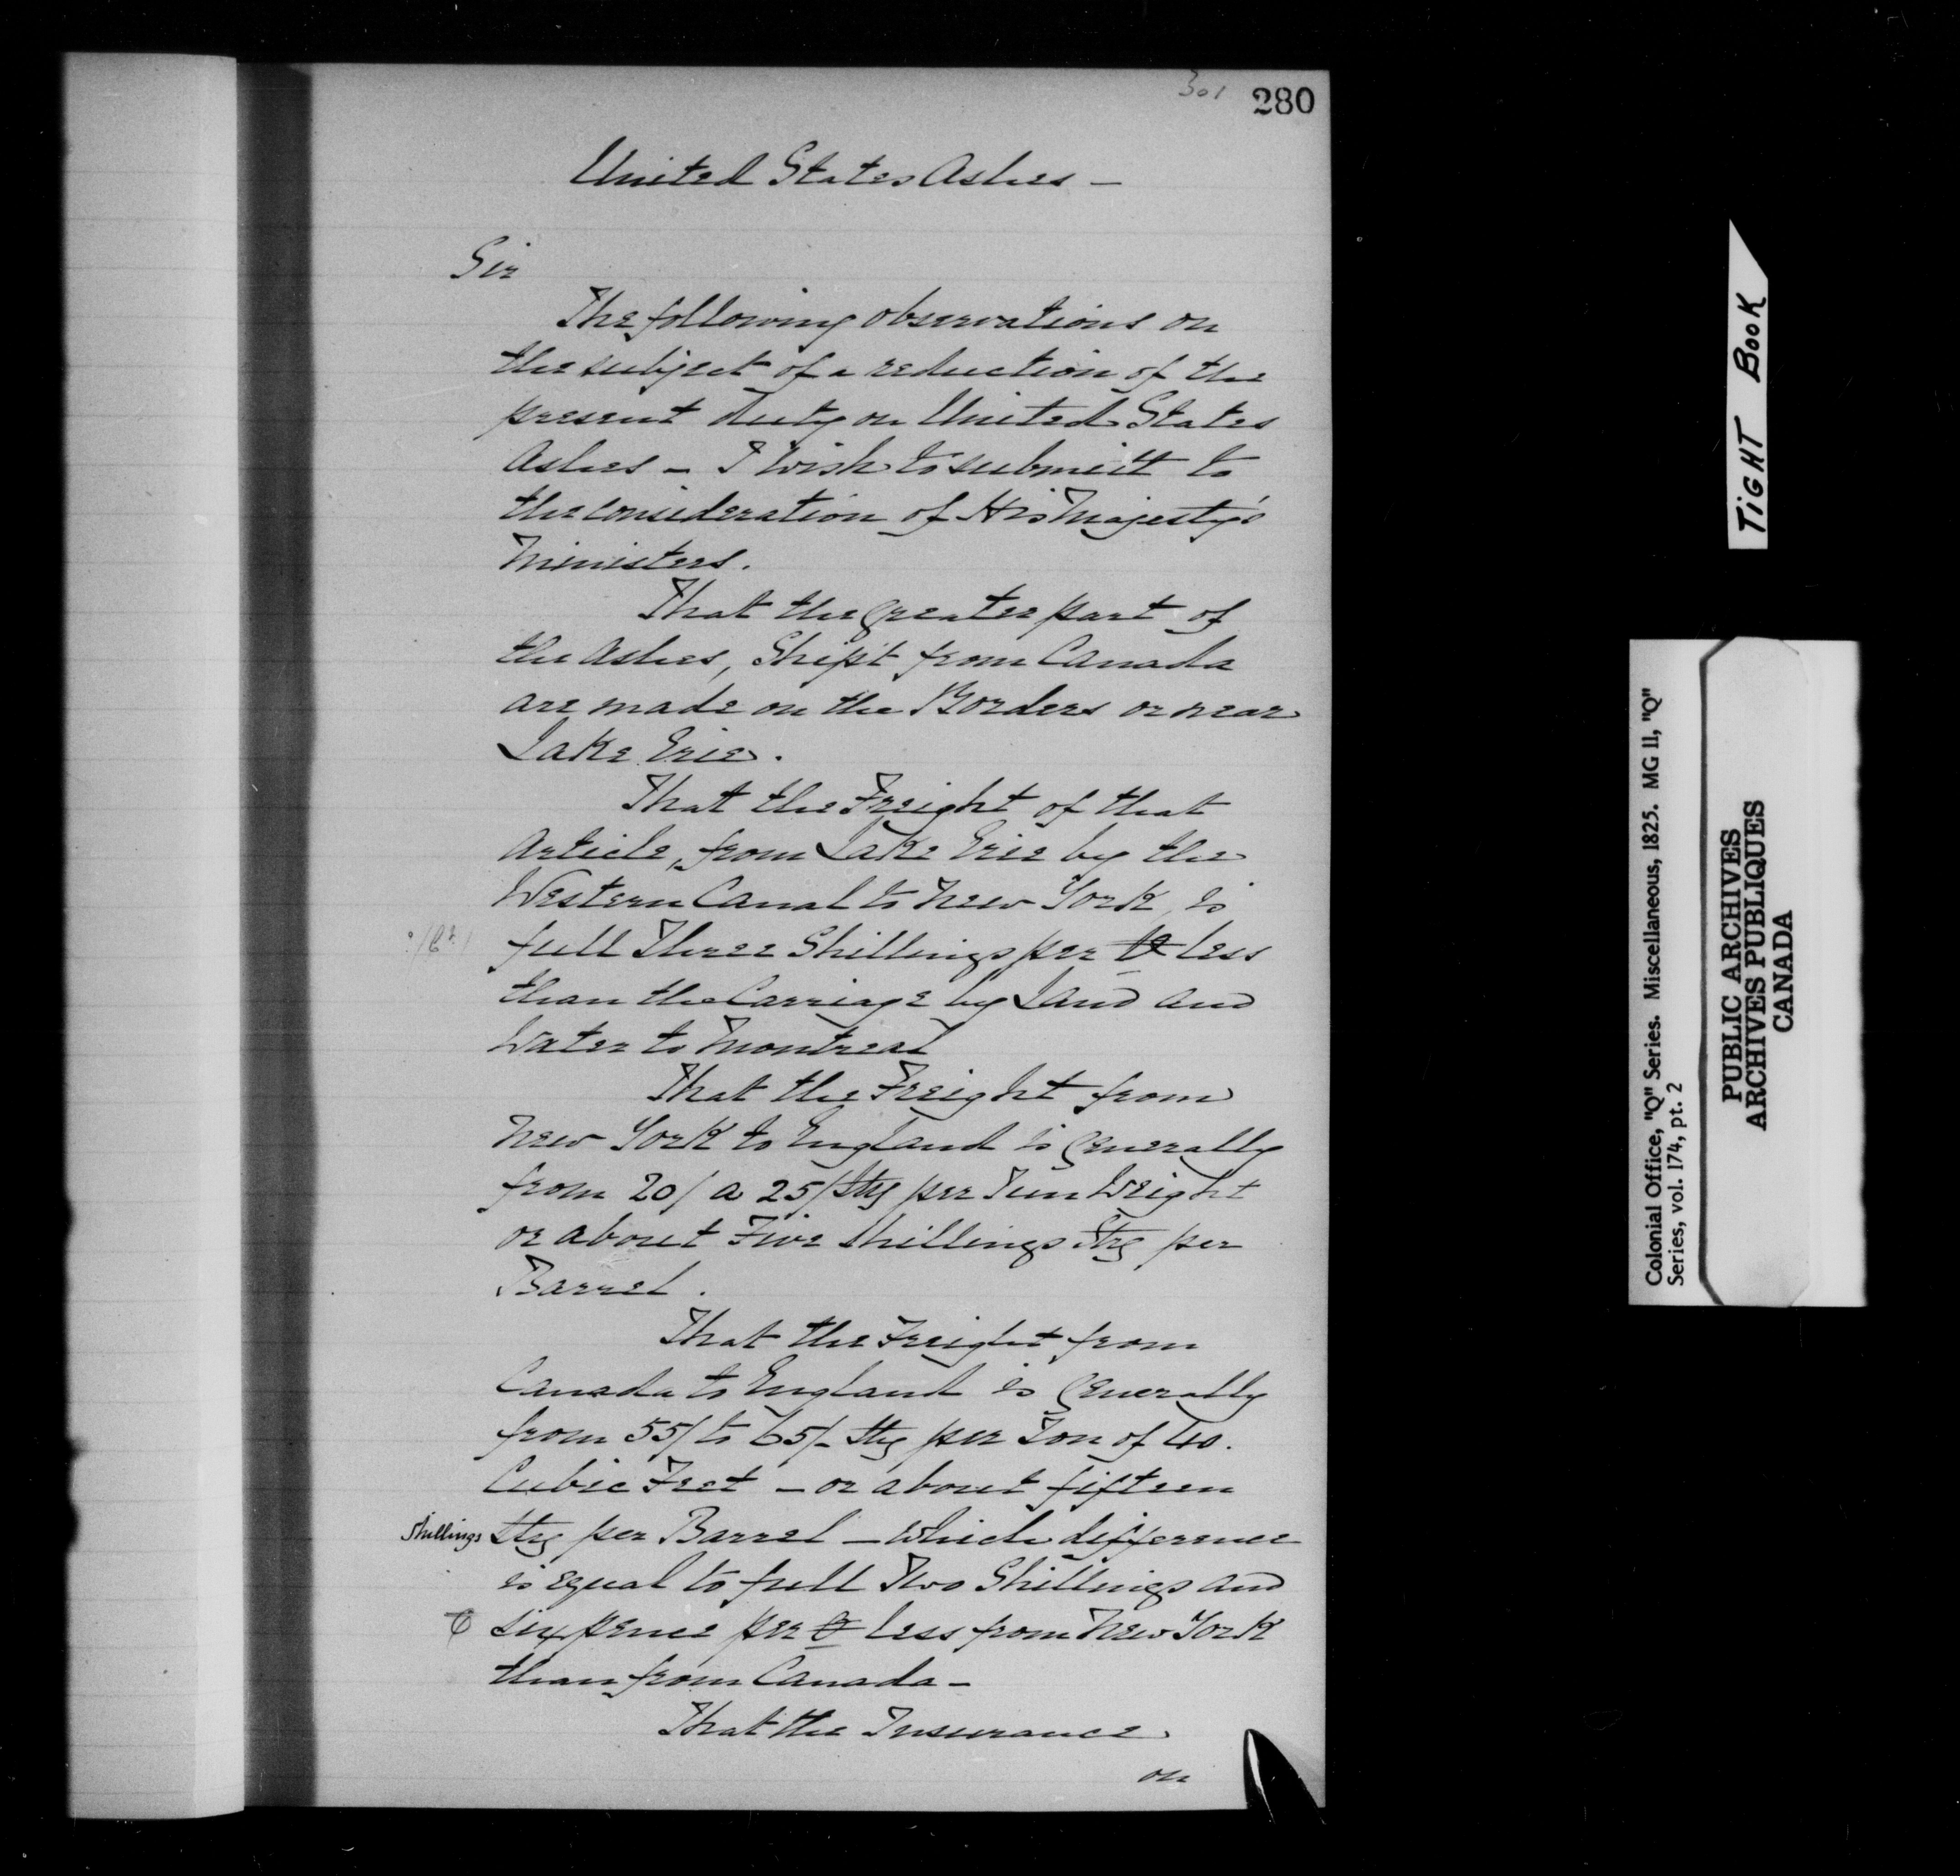 301 280
United States Ashes –
Sir
The following observations on
the subject of a reduction of the
present duty on United States
Ashes – I wish to submitt to
the consideration of His Majesty's
Ministers.
That the greater part of
the Ashes, Ship't from Canada
are made on the Borders or near
Lake Erie.
That the Freight of that
Article, from Lake Erie by the
Western Canal to New York, is
full Three Shillings per less
than the Carriage by Land and
Water to Montreal
That the Freight from
New York to England is generally
from 20/ a 25/ Stg per Tun Weight
or about Five Shillings Stg per
Barrel.
That the Freight from
Canada to England is generally
from 55/ to 65/– Stg per Ton of 40.
Cubic Feet – or about fifteen
Shillings Stg per Barrel – which difference
is equal to full Two Shillings and
sixpence per less from New York
than from Canada –
That the Insurance
on
TIGHT BOOK
Colonial Office, "Q" Series. Miscellaneous, 1825. MG 11, "Q"
Series, vol. 174, pt. 2
PUBLIC ARCHIVES
ARCHIVES PUBLIQUES
CANADA